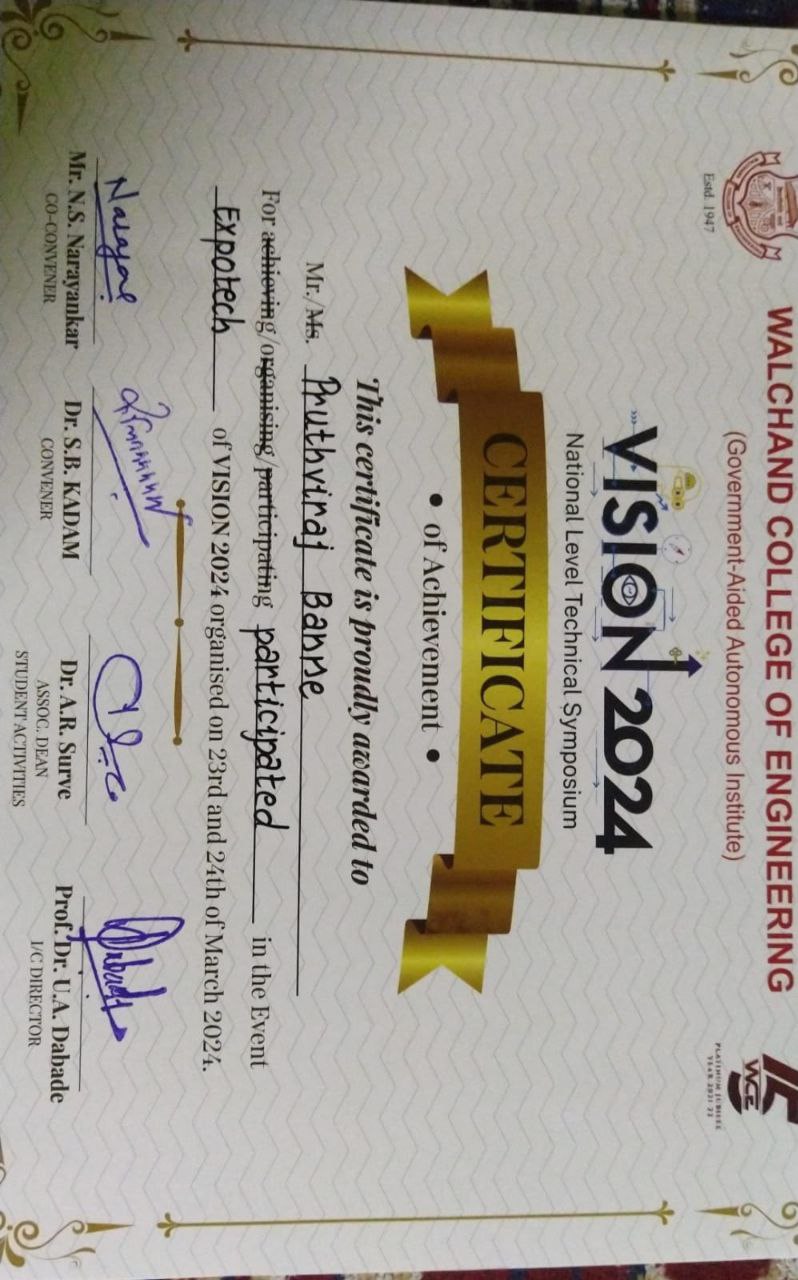 WALCHAND COLLEGE OF ENGINEERING
(Government-Aided Autonomous Institute)
Estd. 1947
75
WCE
PLATINUM JUBILEE
YEAR 2021-22
VISION 2024
National Level Technical Symposium
CERTIFICATE
• of Achievement •
This certificate is proudly awarded to
Mr./Ms. Pruthviraj Banne
For achieving/organising/participating participated in the Event
Expotech of VISION 2024 organised on 23rd and 24th of March 2024.
Mr. N.S. Narayankar Dr. S.B. KADAM Dr. A.R. Surve Prof. Dr. U.A. Dabade
CO-CONVENER CONVENER ASSOC. DEAN I/C DIRECTOR
STUDENT ACTIVITIES